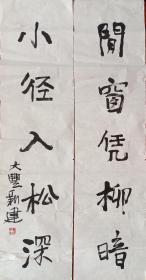 閒窗凭柳暗
小径入松深
大豐新建